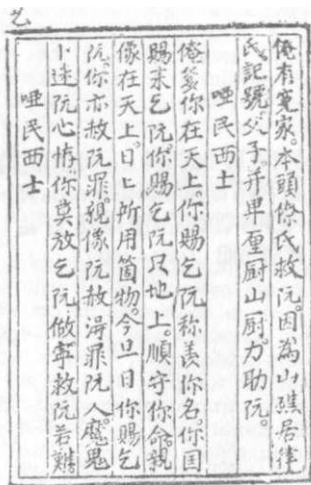 俺有冤家。本頭僚氏救阮。因為山礁居律
氏記號。父子。并卑厘厨山厨。力助阮。
哑民西士
俺爹你在天上。你賜乞阮称羡你名。你国
賜来乞阮。你賜乞阮只地上。順守你命。親
像在天上。日匕所用箇物。今旦日你賜乞
阮。你亦赦阮罪。親像阮赦淂罪阮人。魔鬼
卜迷阮心悻。你莫放乞阮做。寧救阮若難
哑民西士